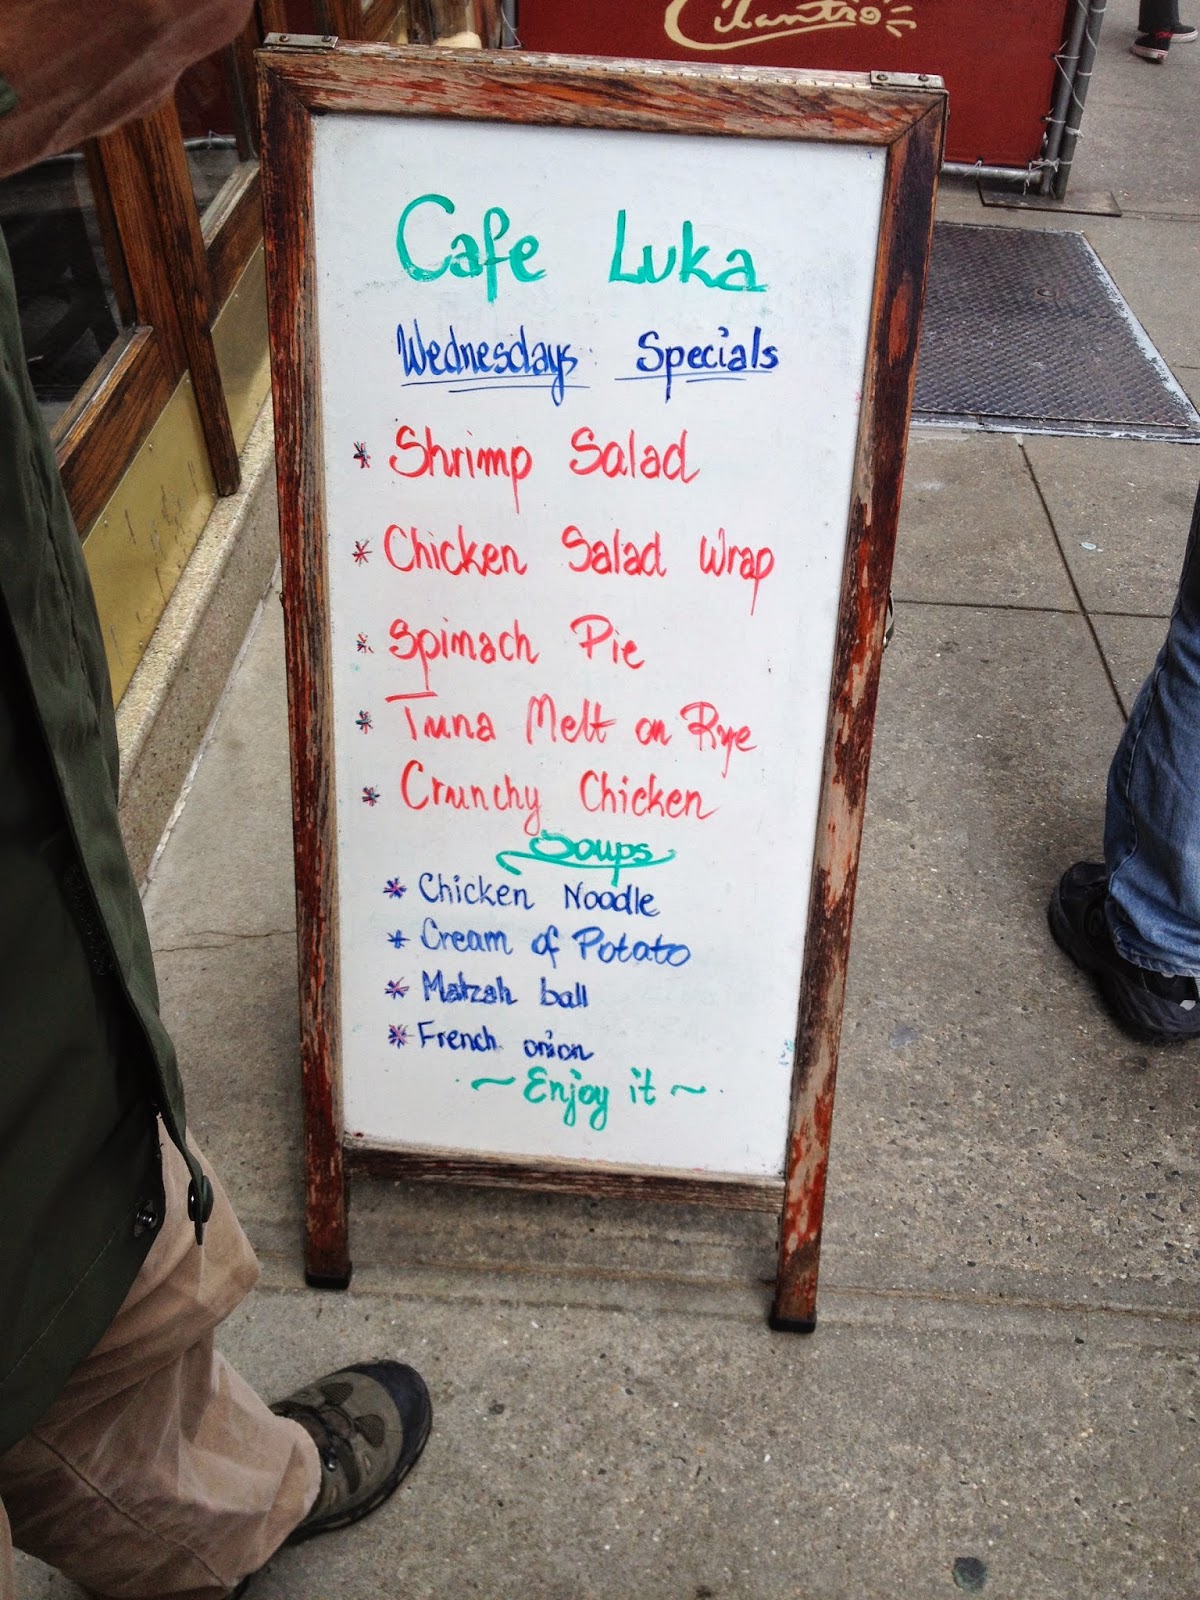 Cilantro
Cafe Luka
Wednesdays Specials
* Shrimp Salad
* Chicken Salad Wrap
* Spinach Pie
* Tuna Melt on Rye
* Crunchy Chicken
Soups
* Chicken Noodle
* Cream of Potato
* Matzah ball
* French onion
~ Enjoy it ~